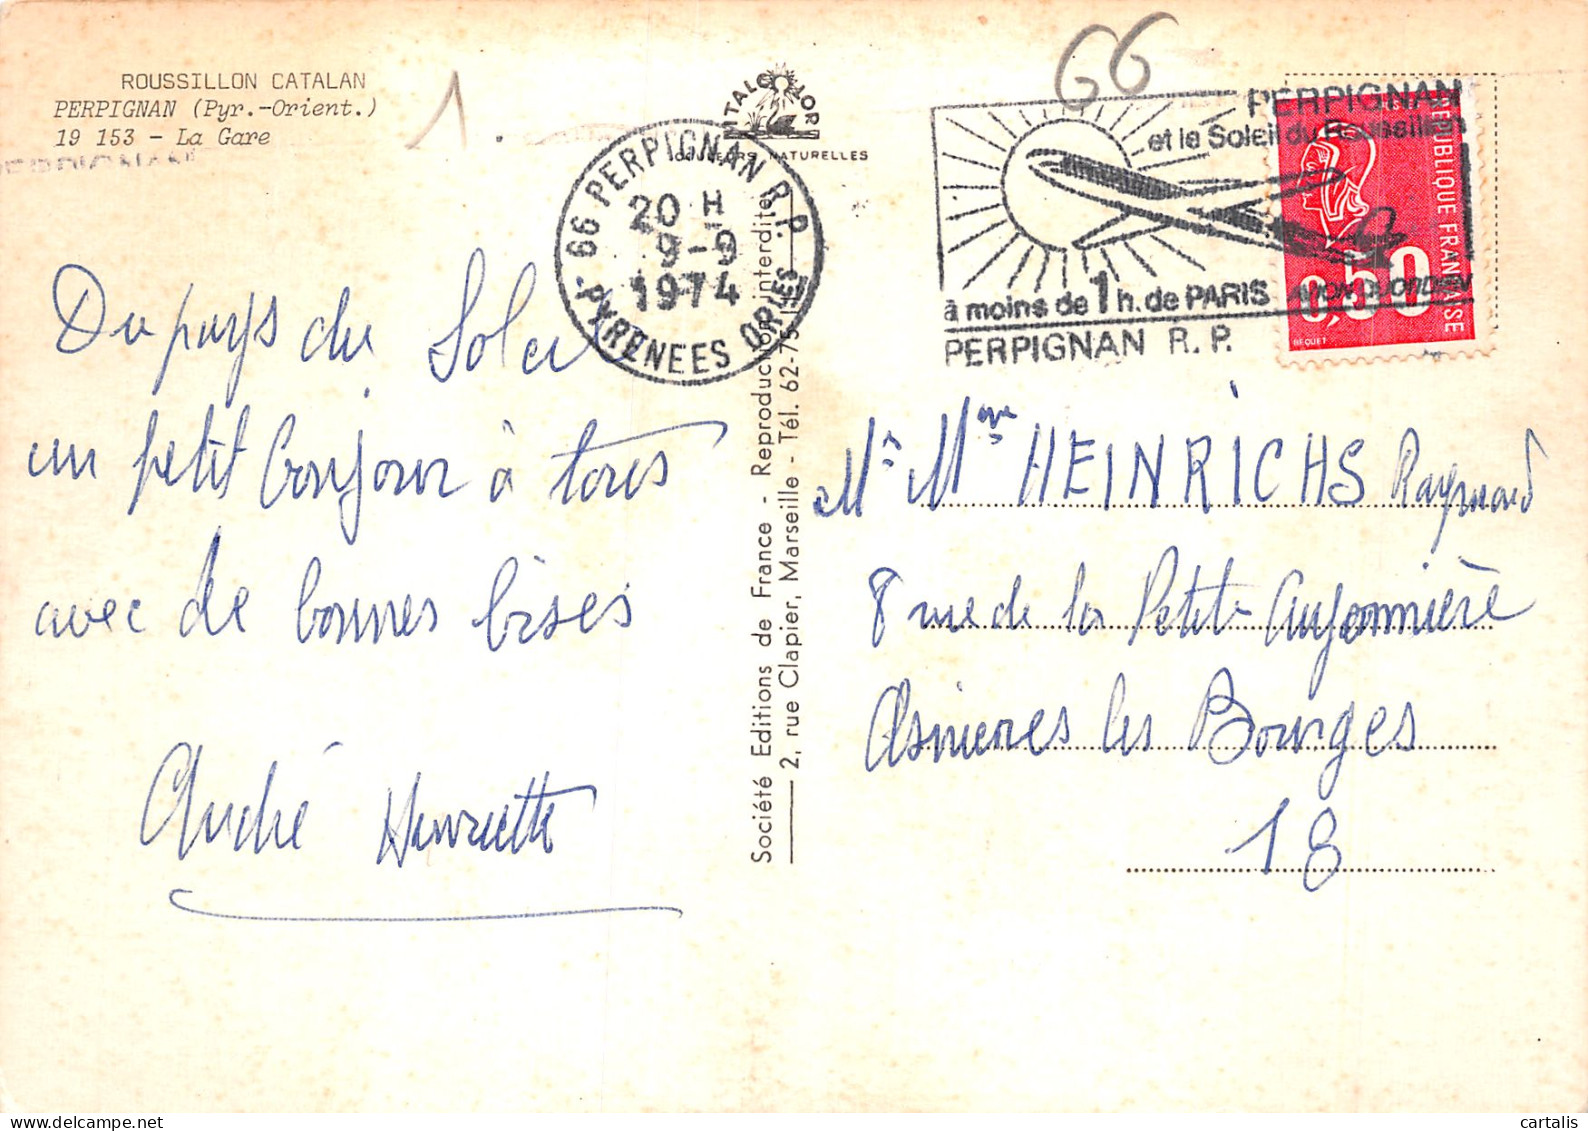 ROUSSILLON CATALAN
PERPIGNAN (Pyr.-Orient.)
19 153 - La Gare
1.
66
ITALCOLOR
COULEURS NATURELLES
66 PERPIGNAN R.P.
20 H
9-9
1974
PYRENEES ORLES
PERPIGNAN
et le Soleil du Roussillon
à moins de 1 h. de PARIS
PERPIGNAN R. P.
REPUBLIQUE FRANCAISE
0,50
BEQUET
Du pays du Soleil
un petit bonjour à tous
avec de bonnes bises
André Henriette
Société Editions de France - Reproduction interdite
2, rue Clapier, Marseille - Tél. 62-75-17
Mr Mme HEINRICHS Raymond
8 rue de la Petite
Asnieres les Bourges
18
cartalis